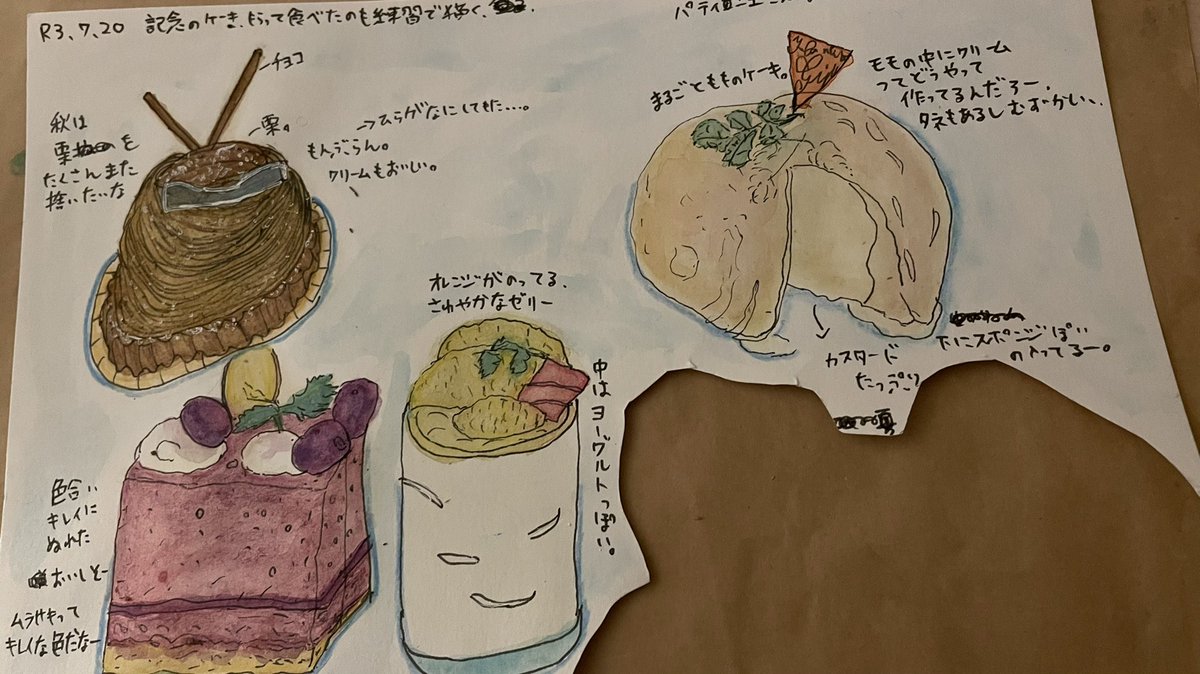 R3.7.20 記念のケーキ、もらって食べたのも練習で描く、
パティ
チョコ
栗。
秋は
栗を
たくさんまた
拾いたいな
もんぶらん。
クリームもおいしい。
まるごとももケーキ。
モモの中にクリーム
ってどうやって
作ってるんだろー、
タネもあるしむずかしい、
カスタード
たっぷり
下にスポンジっぽい
の入ってるー。
オレンジがのってる、
さわやかなゼリー
中はヨーグルトっぽい。
色合い
キレイに
ぬれた
おいしそー
ムラサキって
キレイな色だなー